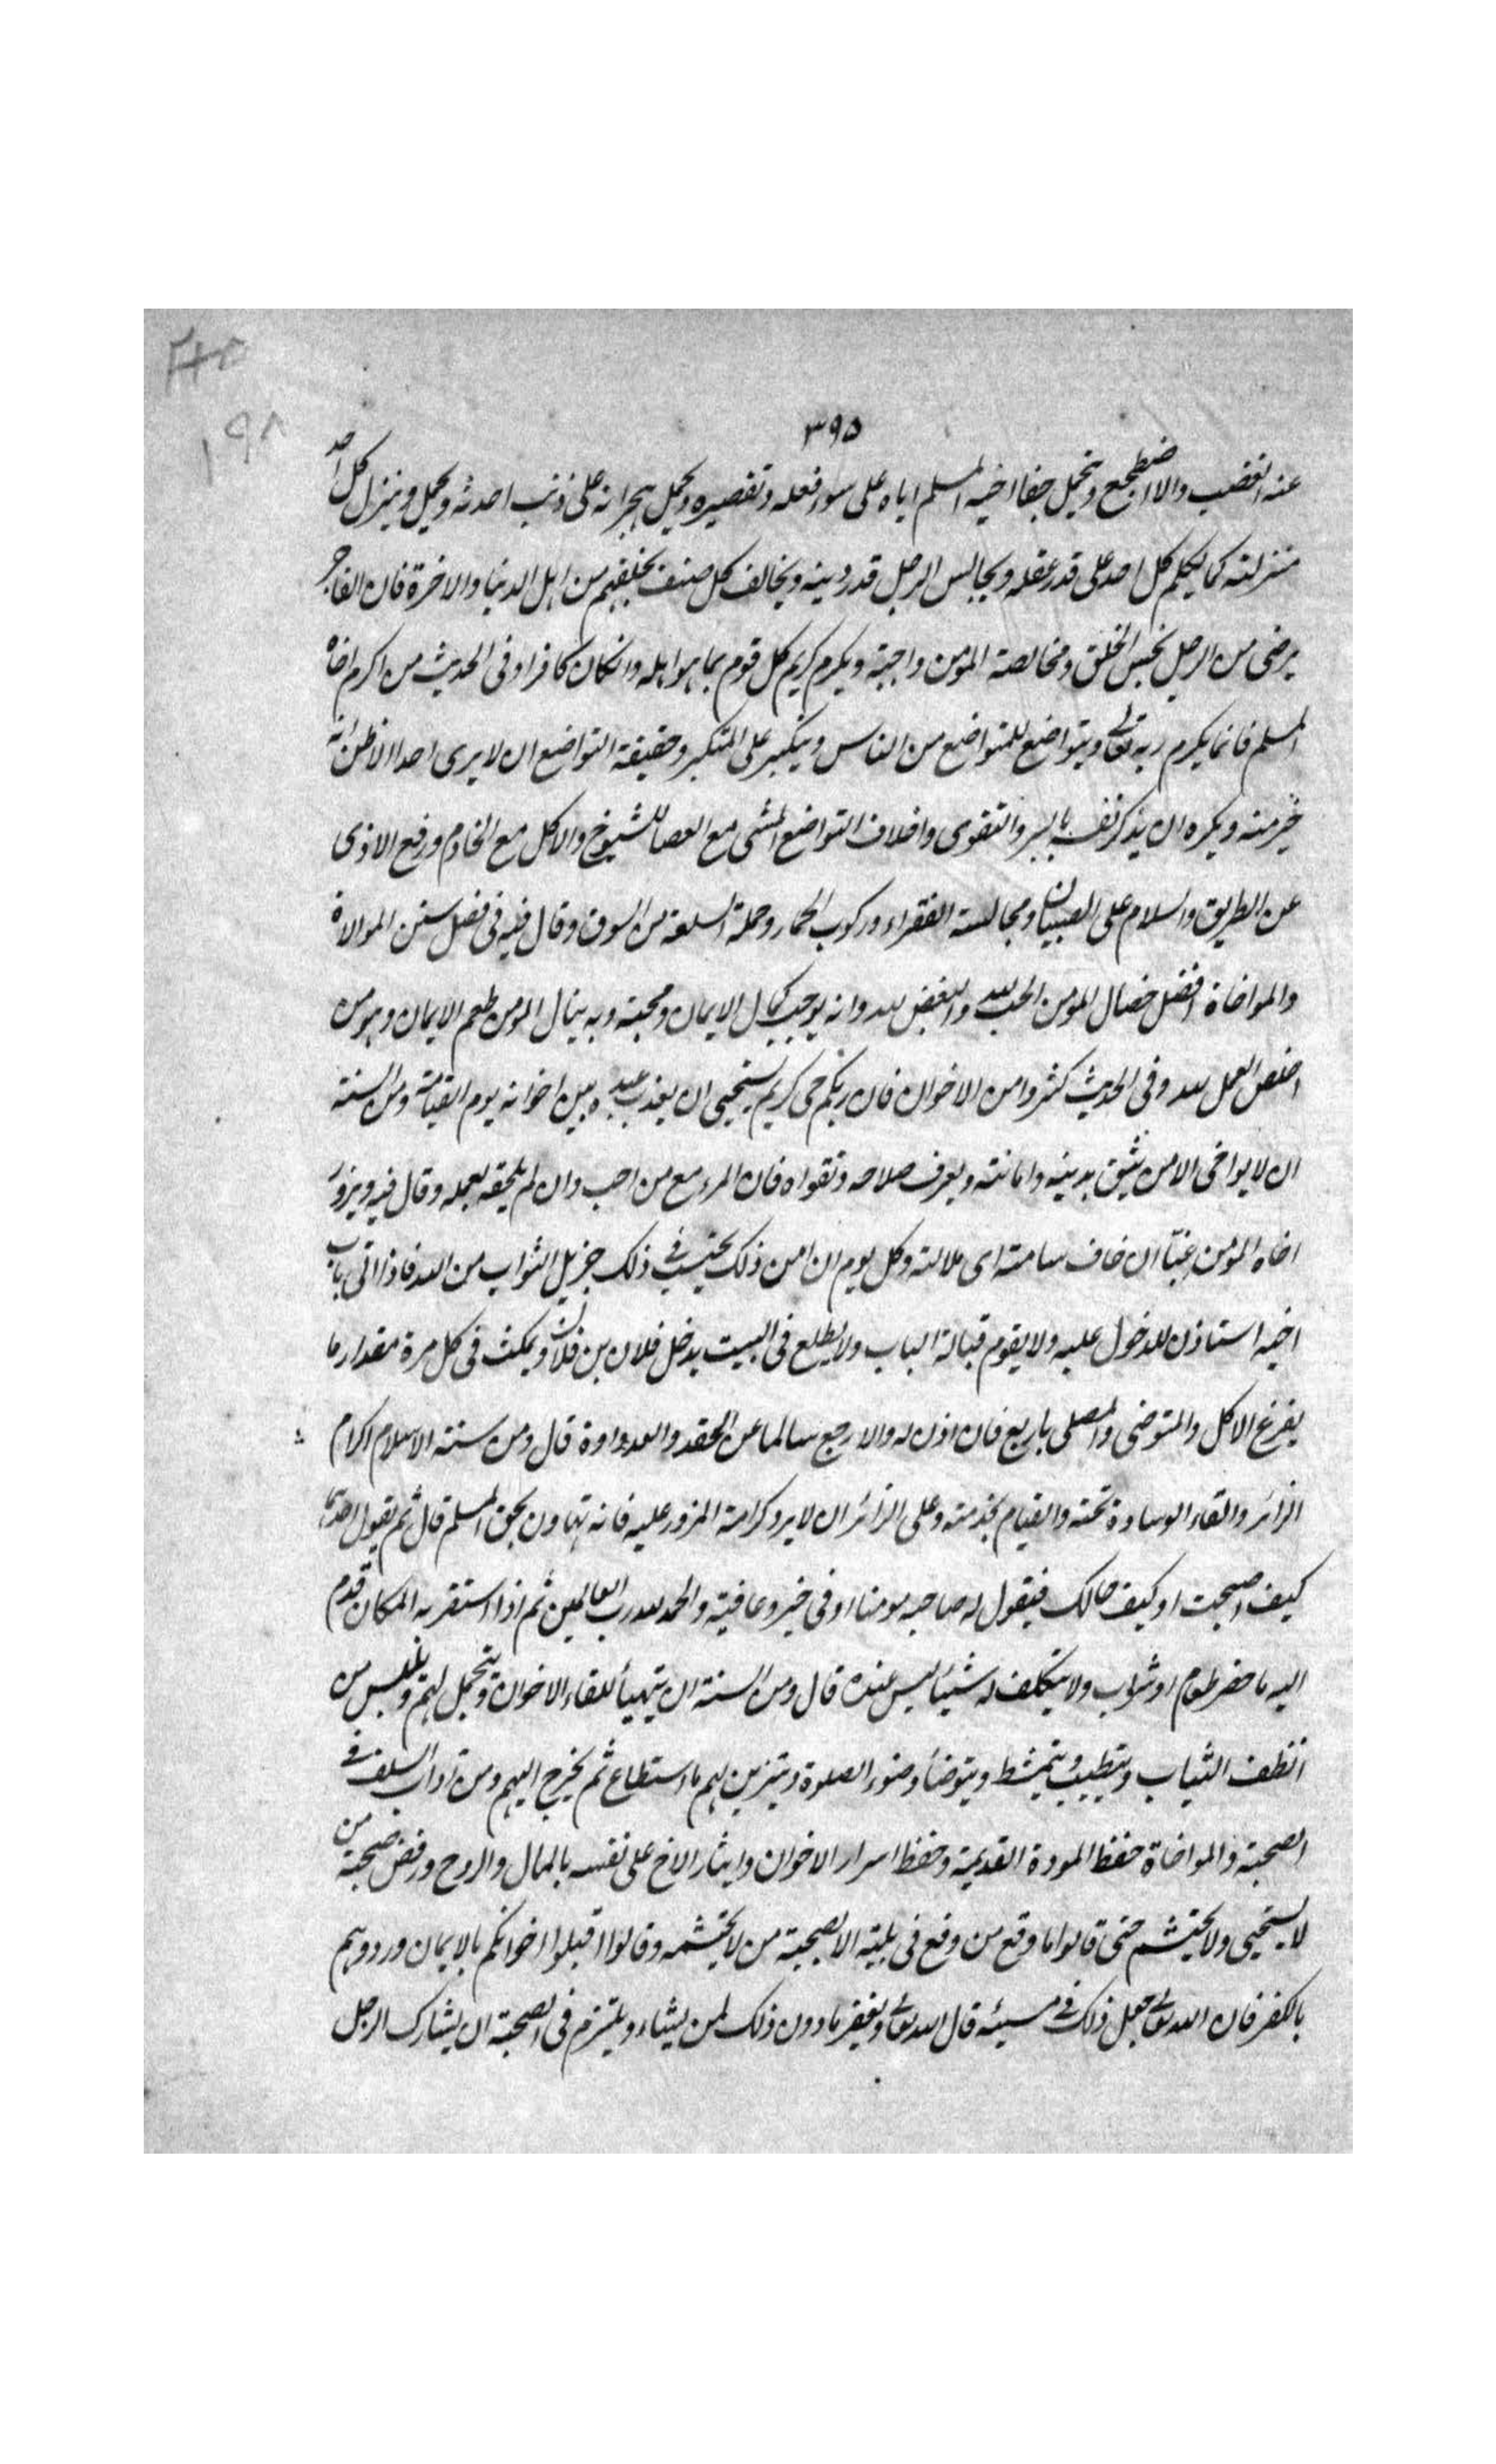 ٣٩٥
عنه الغضب والا اضطجع ويحمل جفا اخيه المسلم اياه على سوء فعله وتقصيره ويحمل هجرانه على ذنب احدثه ويحمل وينزل كل احد
منزلته كما يكلم كل احد على قدر عقله ويجالس الرجل قدر دينه ويخالف كل صنف بخلقهم من اهل الدنيا والاخرة فان الفاجر
يرضى من الرجل بحسن الخلق ومخالصة المؤمن واجبة ويكرم كريم كل قوم بما هو اهله وان كان كافرا وفى الحديث من اكرم اخاه
المسلم فانما يكرم ربه تعالى ويتواضع للمتواضع من الناس ويتكبر على المتكبر وحقيقة التواضع ان لا يرى احدا الا ظن انه
خير منه ويكره ان يذكر نفسه بالبر والتقوى واخلاق التواضع المشى مع العصا للشيوخ والاكل مع الخادم ورفع الاذى
عن الطريق والسلام على الصبيان ومجالسة الفقراء وركوب الحمار وحملة السلعة من السوق وقال فيه فى فصل سنن الموالاة
والمواخاة افضل خصال المؤمن الحب لله والبغض لله وانه يوجب كمال الايمان ومحبته وبه ينال المؤمن طعم الايمان وهو من
افضل العمل لله وفى الحديث كثروا من الاخوان فان ربكم حى كريم يستحيى ان يعذب عبده بين اخوانه يوم القيامة ومن السنة
ان لا يواخى الا من يثق بدينه وامانته ويعرف صلاحه وتقواه فان المرء مع من احب وان لم يلحقه بعمله وقال فيه ويزور
اخاه المؤمن غبّا ان خاف سامته اى ملالته وكل يوم ان امن ذلك يحتسب فى ذلك جزيل الثواب من الله فاذا اتى باب
اخيه استاذن للدخول عليه ولا يقوم قبالة الباب ولا يطلع فى البيت يدخل فلان بن فلان ويمكث فى كل مرة مقدار ما
يفرغ الاكل والمتوضى والمصلى باربع فان اذن له والا رجع سالما عن الحقد والعداوة قال ومن سنة الاسلام اكرام
الزائر والقاء الوسادة تحته والقيام بخدمته وعلى الزائر ان لا يرد كرامة المزور عليه فانه تهاون بحق المسلم قال ثم يقول احدهما
كيف اصبحت او كيف حالك فيقول له صاحبه مومنا او فى خير وعافية والحمد لله رب العالمين ثم اذا استقر به المكان قدم
اليه ما حضر طعام او شراب ولا يتكلف له شيئا ليس عنده قال ومن السنة ان يتهيأ للقاء الاخوان ويتجمل لهم ويلبس من
انظف الثياب ويتطيب ويتمشط ويتوضأ وضوء الصلوة ويتزين لهم ما استطاع ثم يخرج اليهم ومن آداب السلف فى
الصحبة والمواخاة حفظ المودة القديمة وحفظ اسرار الاخوان وايثار الاخ على نفسه بالمال والروح ورفض صحبة من
لا يستحيى ولا يحتشم حتى قالوا ما وقع من وقع فى بلية الا بصحبة من لا يحتشمه وقالوا اقبلوا اخوانكم بالايمان وردوهم
بالكفر فان الله تعالى جعل ذلك فى مسيئه قال الله تعالى ويغفر ما دون ذلك لمن يشاء ويلتزم فى الصحبة ان يشارك الرجل